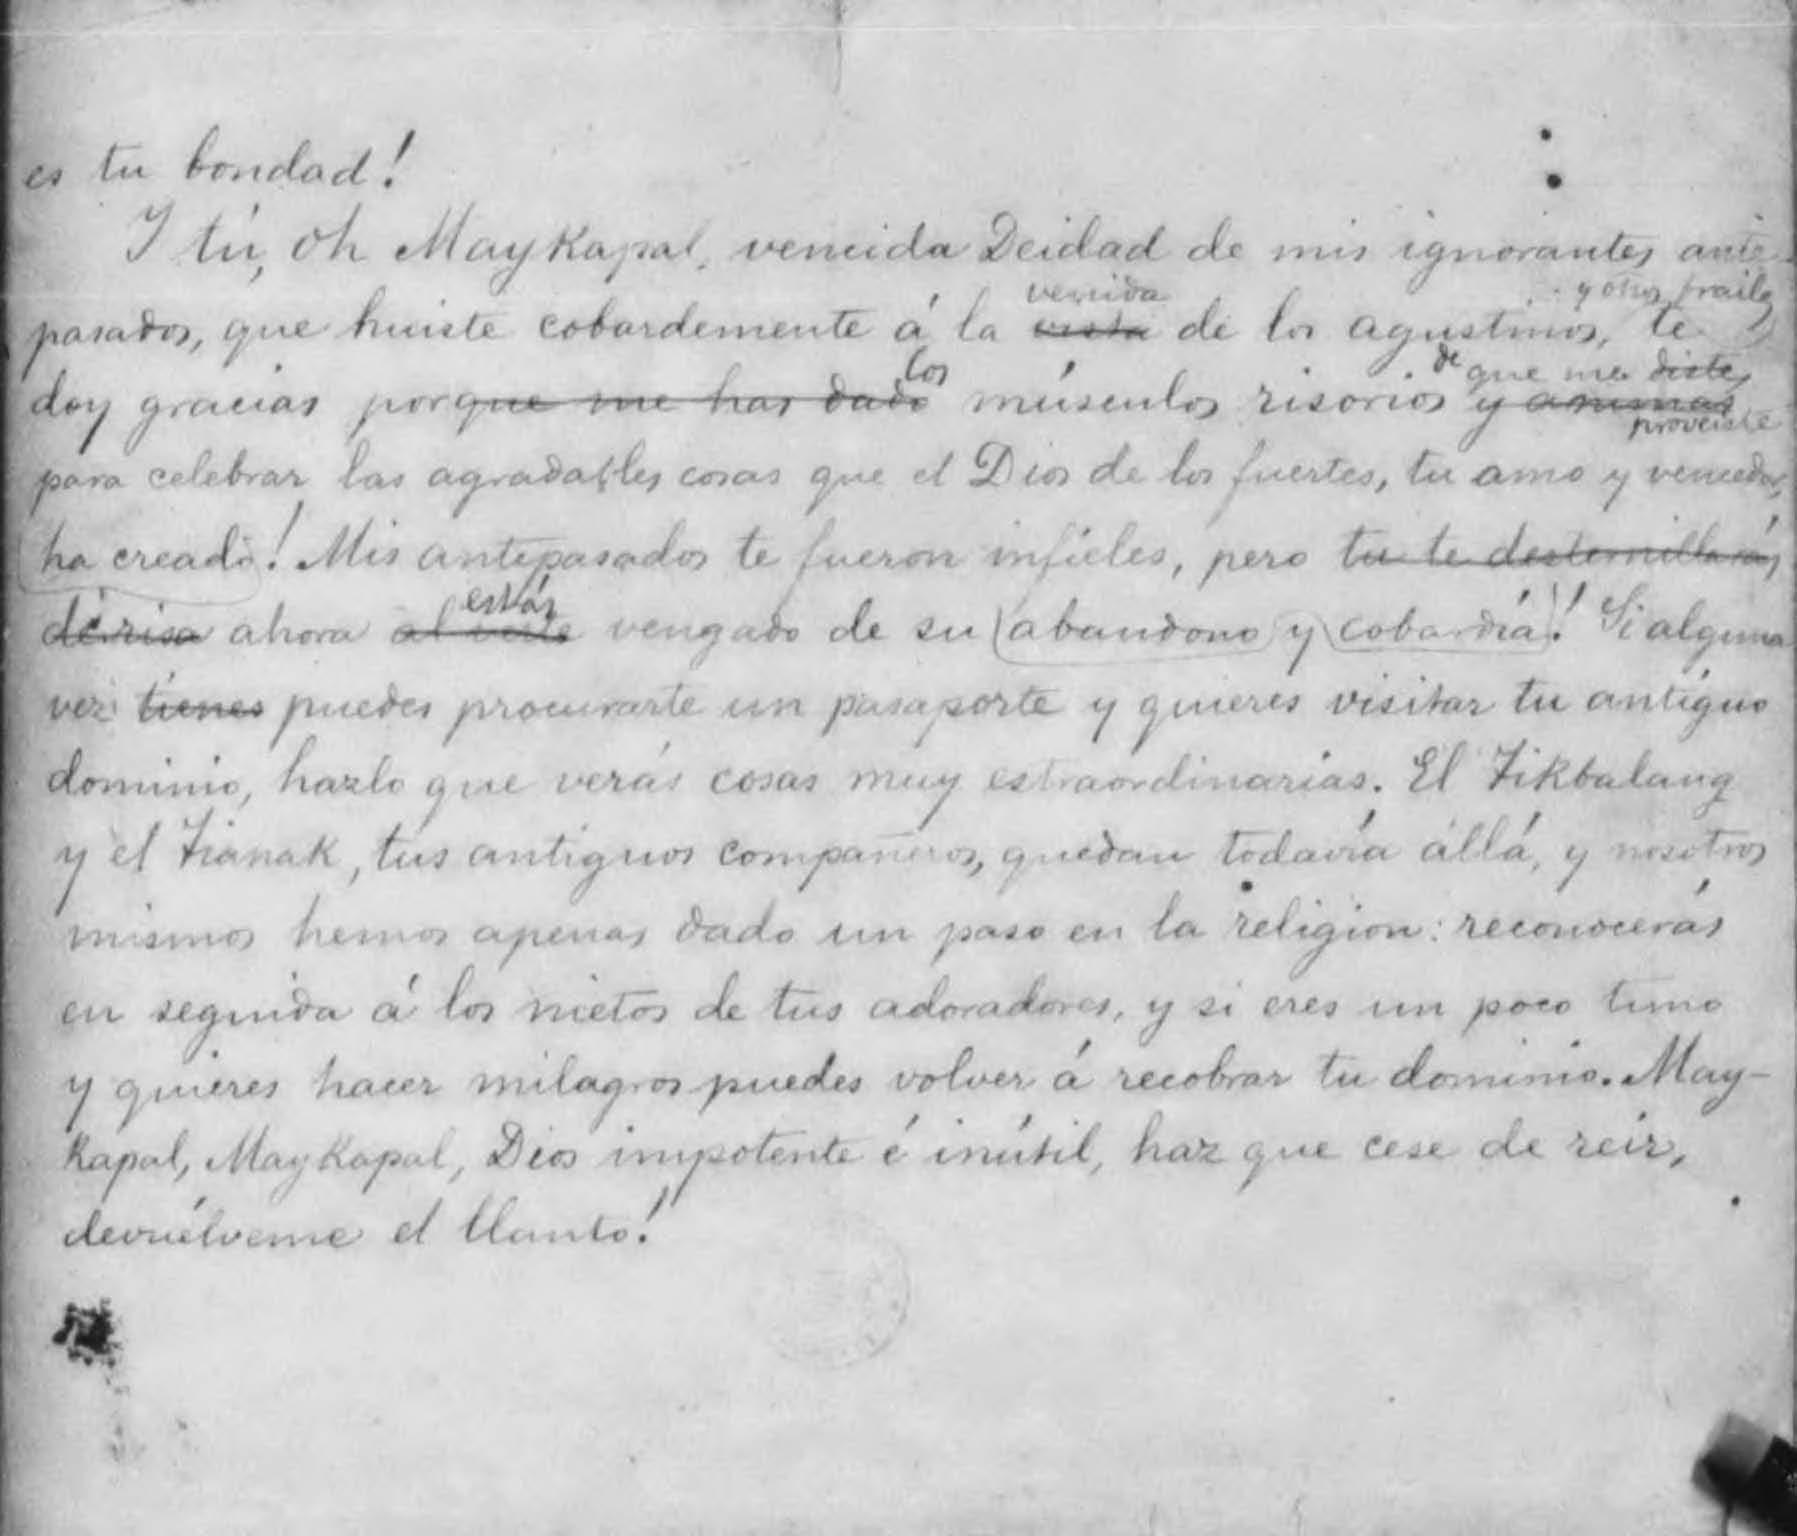 es tu bondad!
I tú, oh Maykapal, vencida Deidad de mis ignorantes ante-
venida y otros frailes
pasados, que huiste cobardemente á la vista de los agustinos, te
los de que me distes
doy gracias porque me has dado músculos risorios y animas
proveiste
para celebrar las agradables cosas que el Dios de los fuertes, tu amo y vencedor,
ha creado! Mis antepasados te fueron infieles, pero tu te desternillarás
estás
de risa ahora al verte vengado de su abandono y cobardía! Si alguna
vez tienes puedes procurarte un pasaporte y quieres visitar tu antíguo
dominio, hazlo que verás cosas muy estraordinarias. El Tikbalang
y el Tianak, tus antiguos compañeros, quedan todavía allá, y nosotros
mismos hemos apenas dado un paso en la religion: reconocerás
en seguida á los nietos de tus adoradores, y si eres un poco tuno
y quieres hacer milagros puedes volver á recobrar tu dominio. May-
kapal, Maykapal, Dios impotente é inútil, haz que cese de reir,
devuélveme el llanto!